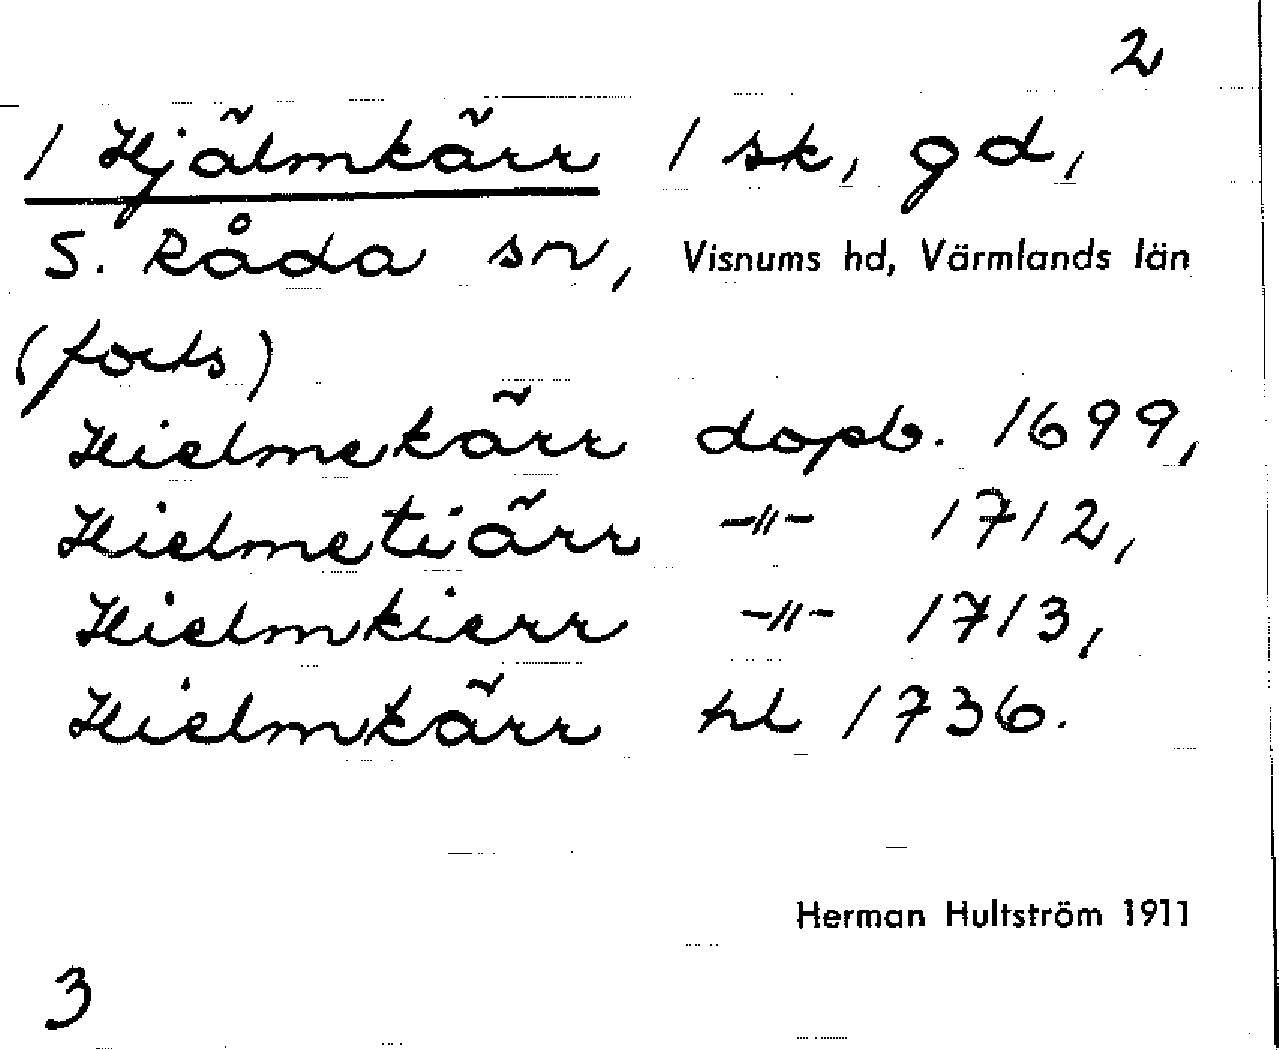 2
/ Hjälmkärr / sk, gd,
S. Råda sn, Visnums hd, Värmlands län
(forts)
Hielmekärr dopb. 1699,
Hielmetiärr -"- 1712,
Hielmkierr -"- 1713,
Hielmkärr hl 1736.
Herman Hultström 1911
3